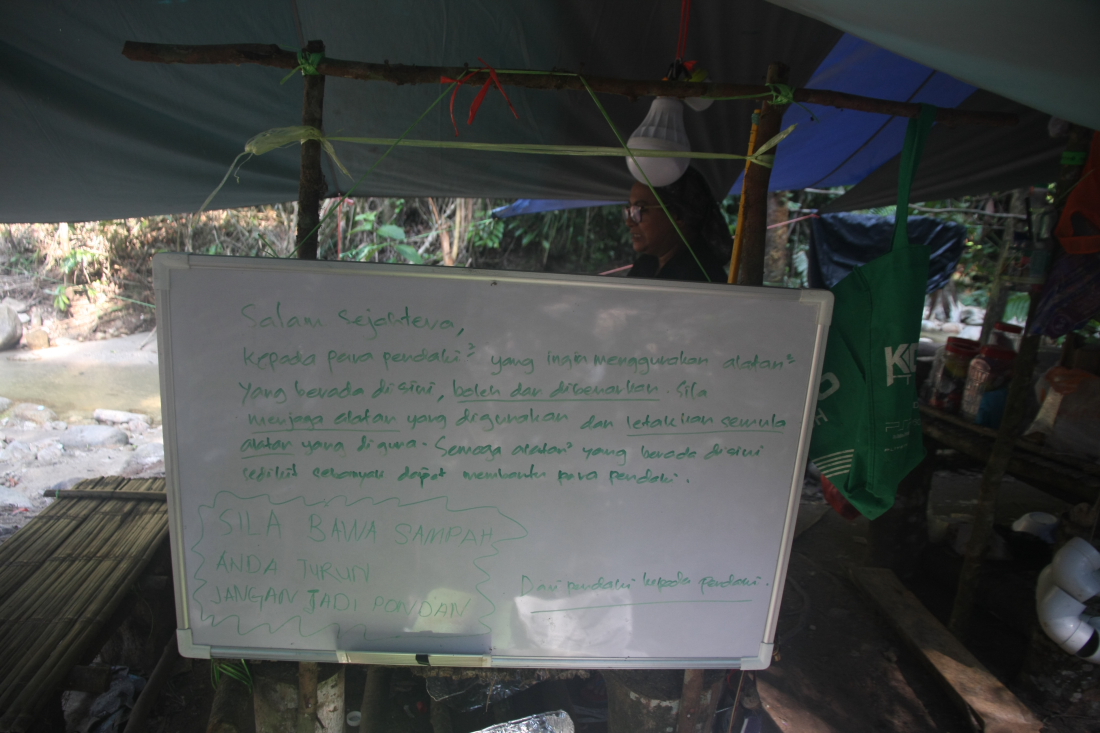 Salam Sejahtera,
Kepada para pendaki² yang ingin menggunakan alatan²
yang berada disini, boleh dan dibenarkan. Sila
menjaga alatan yang digunakan dan letakkan semula
alatan yang diguna. Semoga alatan² yang berada disini
sedikit sebanyak dapat membantu para pendaki.
SILA BAWA SAMPAH
ANDA TURUN
JANGAN JADI PONDAN
Dari pendaki kepada pendaki.